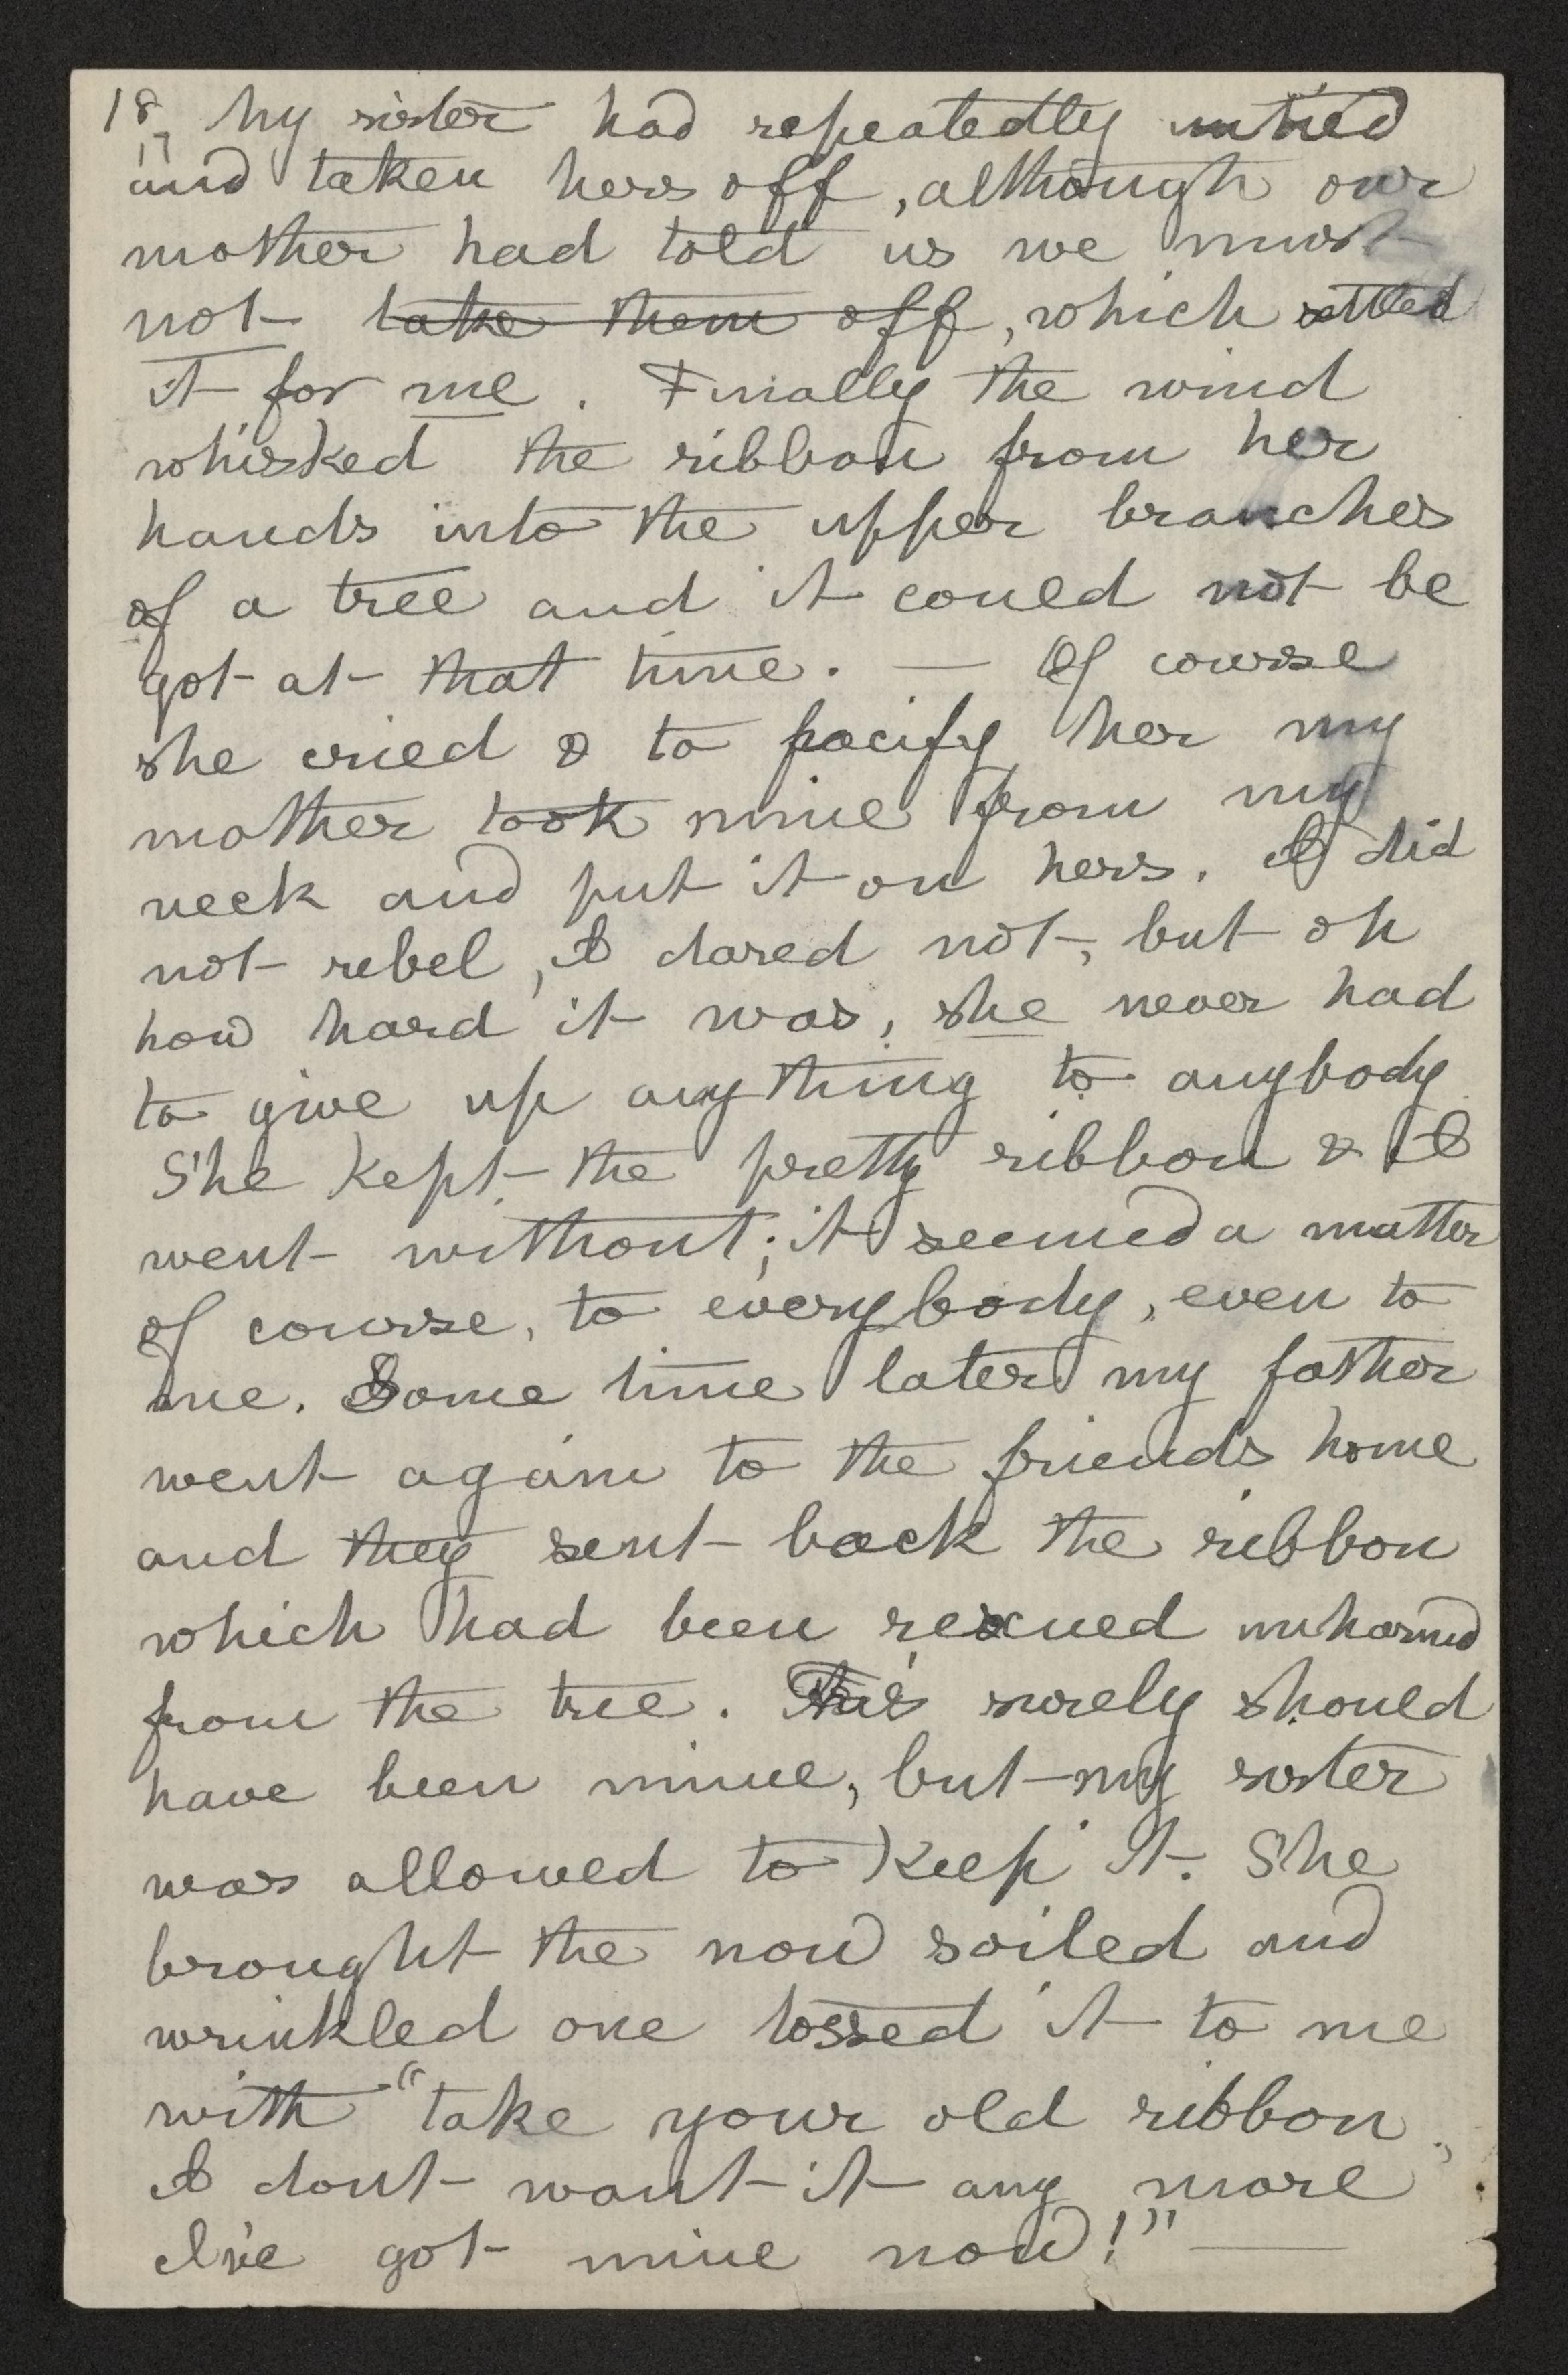 18, My sister had repeatedly untied
17
and taken hers off, although our
mother had told us we must
not take them off, which settled
it for me. Finally the wind
whisked the ribbon from her
hands into the upper branches
of a tree and it could not be
got at that time. — Of course
she cried & to pacify her my
mother took mine from my
neck and put it on hers. I did
not rebel, I dared not, but oh
how hard it was, she never had
to give up anything to anybody
She kept the pretty ribbon & I
went without; it seemed a matter
of course, to everybody, even to
me. Some time later my father
went again to the friends home
and they sent back the ribbon
which had been rescued unharmed
from the tree. This surely should
have been mine, but my sister
was allowed to keep it. She
brought the now soiled and
wrinkled one tossed it to me
with "take your old ribbon,
I dont want it any more
I've got mine now!" —